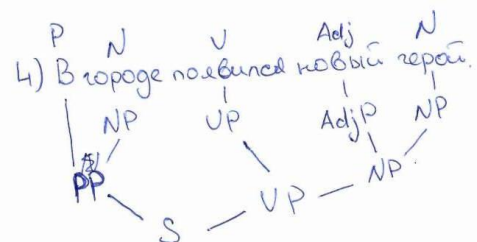 P N V Adj N
4) В городе появился новый герой.
NP VP AdjP NP
PP NP
S VP